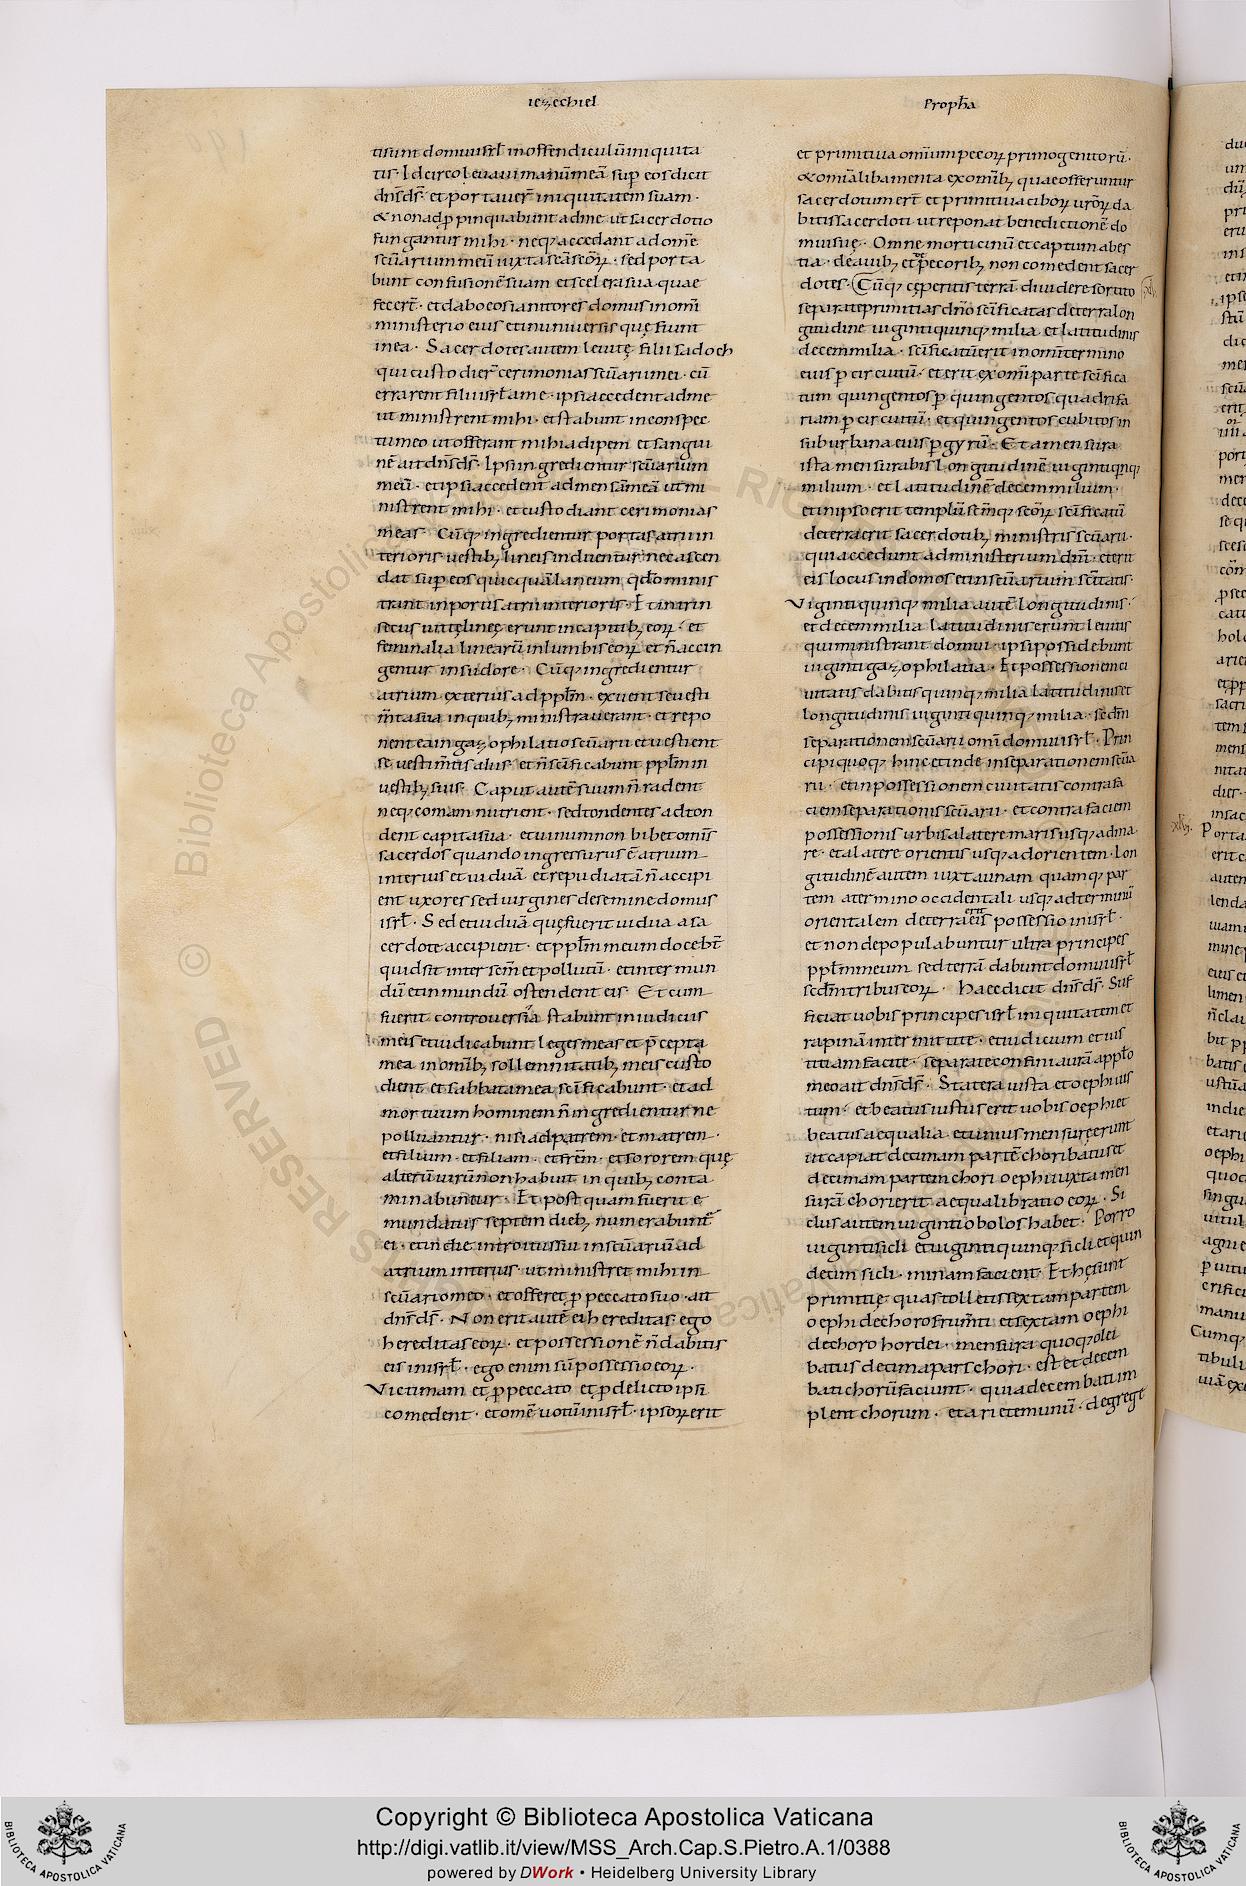 iezechiel
Propħa
tisunt domuiisrł inoffendiculūiniquita
tis· Idcirco leuaui manūmeā sup̄ eos dicit
dn̄sd̄s· et portauer̄ iniquitatem suam·
& nonadp̄pinquabunt adme ut sacerdotio
fungantur mihi· neq; accedant ad om̄e
sc̄uarium meū iuxta sc̄asc̄oꝝ· sed porta
bunt confusionē suam et scelera sua quae
fecer̄t· et dabo eos ianitores domus in om̄i
ministerio eius et in uniuersis quę fiunt
in ea· Sacerdotes autem leuitę filii sadoch
qui custodier̄ cerimonias sc̄uarii mei· cū
errarent filii isrł a me· ipsi accedent ad me
ut ministrent mihi· et stabunt in conspec
tu meo ut offerant mihi adipem et sangui
nē ait dn̄sd̄s· Ipsi ingredientur sc̄uarium
meū· et ipsi accedent ad mensā meā ut mi
nistrent mihi· et custodiant cerimonias
meas· Cūq; ingredientur portas atrii in
terioris· uestib; lineis induentur nec ascen
dat sup̄ eos quicquā laneum qd̄o minis
trant in portis atrii interioris· Et intrin
secus uittę lineę erunt in capitib; eoꝝ· et
feminalia linea erū in lumbis eoꝝ et n̄ accin
gentur in sudore· Cūq; ingredientur
atrium exterius ad ppłm· exuent se uesti
m̄ta sua in quib; ministrauerant· et repo
nent ea in gazophilatio sc̄uarii et uestient
se uestim̄tis aliis· et n̄ sc̄ificabunt ppłm in
uestib; suis· Caput autē suum n̄ radent
neq; comam nutrient· sed tondentes adton
dent capita sua· et uinum non bibet omīs
sacerdos quando ingressurus ē atrium
interius et uiduā et repudiatā n̄ accipi
ent uxores sed uirgines de semine domus
isrł· Sed et uiduā quę fuerit uidua a sa
cerdote accipient· et ppłm meum docebt̄
quid sit inter sc̄m et pollutū· et inter mun
dū et inmundū ostendent eis· Et cum
fuerit controuersia stabunt in iudiciis
meis et iudicabunt leges meas et p̄cepta
mea in omīb; sollemnitatib; meis custo
dient et sabbata mea sc̄ificabunt· et ad
mortuum hominem n̄ ingredientur ne
polluantur· nisi ad patrem et matrem·
et filium· et filiam· et fr̄em· et sororem quę
alterū uirū non habuit in quib; conta
minabuntur· Et postquam fuerit e
mundatus septem dieb; numerabunt̄
ei· et in die introitus sui in sc̄uariū ad
atrium interius· ut ministret mihi in
sc̄uario meo· et offeret p̄ peccato suo· ait
dn̄sd̄s· Non erit autē eis hereditas· ego
hereditas eoꝝ· et possessionē n̄ dabitis
eis in isrł· ego enim sū possessio eoꝝ·
Victimam et p̄ peccato et p̄ delicto ipsi
comedent· et om̄e uotū in isrł· ipsoꝝ erit
et primitiua omīum pecoꝝ primogenitorū·
& omīa libamenta ex omīb; quae offeruntur
sacerdotum er̄t et primitiua ciboꝝ ur̄oꝝ da
bitis sacerdoti ut reponat benedictionē do
mui suę· Omne morticinū et captum a bes
tia· de auib; et de pecorib; non comedent sacer
dotes· Cūq; cęperitis terrā diuidere sortito
separate primitias dn̄o sc̄ificatas de terra lon
gitudine uiginti quinq; milia et latitudinis
decem milia· sc̄ificatū erit in om̄i termino
eius p̄ circuitū· et erit ex om̄i parte sc̄ifica
tum quingentos p̄ quingentos quadrifa
riam p̄ circuitū· et quingentos cubitos in
suburbana eius p̄ gyrū· Et a mensura
ista mensurabis longitudinē uigintiqinq;
milium· et latitudinē decem milium·
et in ipso erit templū sc̄mq; sc̄oꝝ sc̄ificatū
de terra erit sacerdotib; ministris sc̄uarii·
qui accedunt ad ministerium dn̄i· et erit
eis locus in domos et in sc̄uarium sc̄itatis·
Viginti quinq; milia autē longitudinis·
et decem milia latitudinis erunt leuitis
qui ministrant domui· ipsi possidebunt
uiginti gazophilatia· Et possessionem ci
uitatis dabitis quinq; milia latitudinis et
longitudinis uiginti quinq; milia· sed̄m
separationem sc̄uarii om̄i domui isrł· Prin
cipi quoq; hinc et inde in separationem sc̄ua
rii· et in possessionem ciuitatis contra fa
ciem separationis sc̄uarii· et contra faciem
possessionis urbis a latere maris usq; ad ma
re· et a latere orientis usq; ad orientem· Lon
gitudinē autem iuxta unam quamq; par
tem a termino occidentali usq; ad terminū
orientalem de terra erit eis possessio in isrł·
et non depopulabuntur ultra principes
ppłm meum sed terrā dabunt domui isrł
sed̄m tribus eoꝝ· Haec dicit dn̄sd̄s· Suf
ficiat uobis principes isrł iniquitatem et
rapinā intermittite· et iudicium et ius
titiam facite· separate confinia urā a ppło
meo ait dn̄sd̄s· Statera iusta et oephi ius
tum· et beatus iustus erit uobis oephi et
beatus aequalia et unius mensurę erunt
ut capiat decimam partē chori batus et
decimam partem chori oephi iuxta men
surā chori erit aequa libratio eoꝝ· Si
clus autem uiginti obolos habet· Porro
uiginti sicli et uiginti quinq; sicli et quin
decim sicli· minam facient· Et hę sunt
primitię quas tolletis sextam partem
oephi de choro frum̄ti et sextam oephi
de choro hordei· mensura quoq; olei
batus decima pars chori· est et decem
bati chorū faciunt· quia decem bati im
plent chorum· et arietem unū· de grege